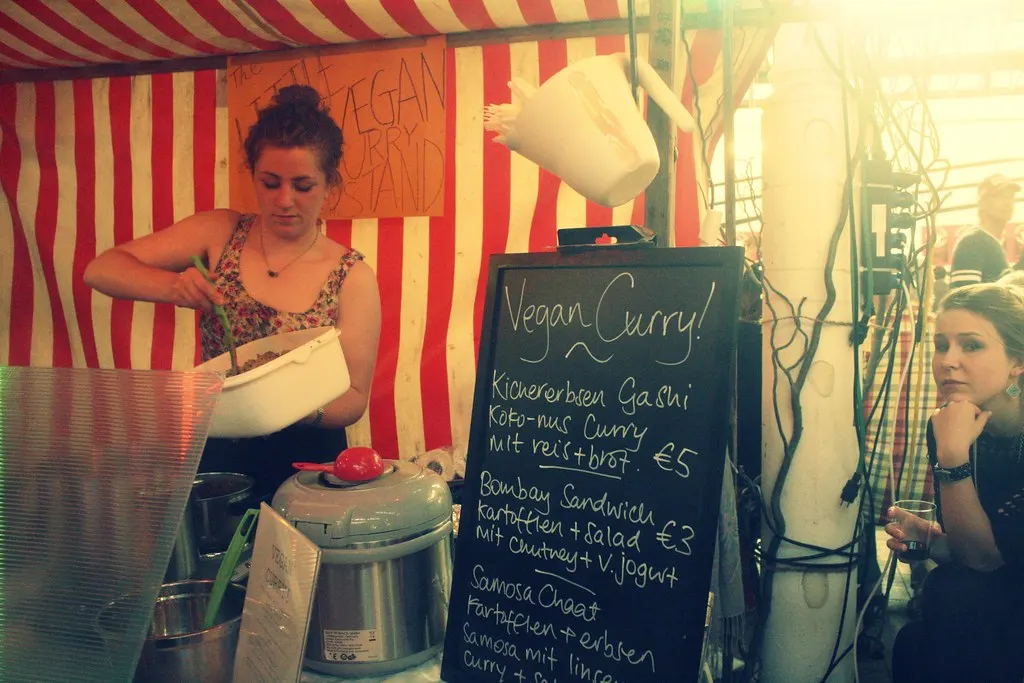 The
VEGAN
CURRY
STAND
Vegan Curry!
Kichererbsen Gashi
Koko-nus Curry
mit reis + brot. €5
Bombay Sandwich
Kartofflen + Salad €3
mit chutney + v. jogurt
Samosa Chaat
Kartofflen + erbsen
Samosa mit linsen
curry +